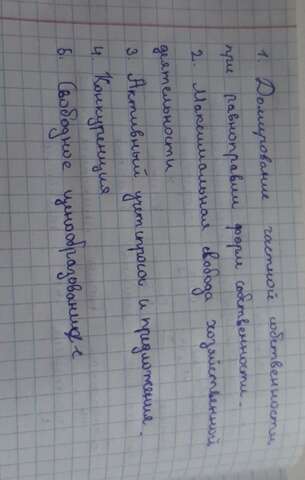 1. Доминирование частной собственности
при равноправии форм собственности.
2. Максимальная свобода хозяйственной
деятельности
3. Активный учёт спроса и предложения.
4. Конкуренция
5. Свободное ценообразование